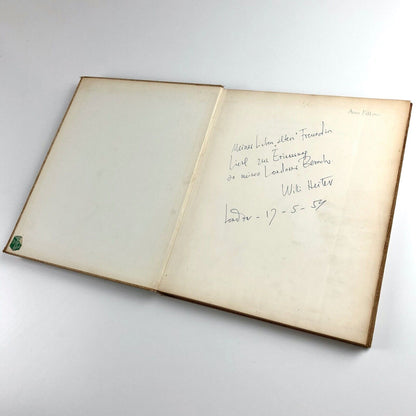 Meiner lieben "alten" Freundin
Liesl zur Erinnerung
an meinen Londoner Besuch
Willi
London - 17 - 5 - 59